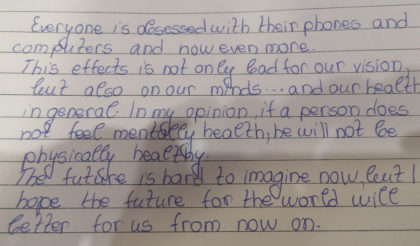 Everyone is obsessed with their phones and
computers and now even more.
This effects is not only bad for our vision,
but also on our minds... and our health
in general. In my opinion, if a person does
not feel mentally health, he will not be
physically healthy.
The future is hard to imagine now, but I
hope the future for the world will
better for us from now on.